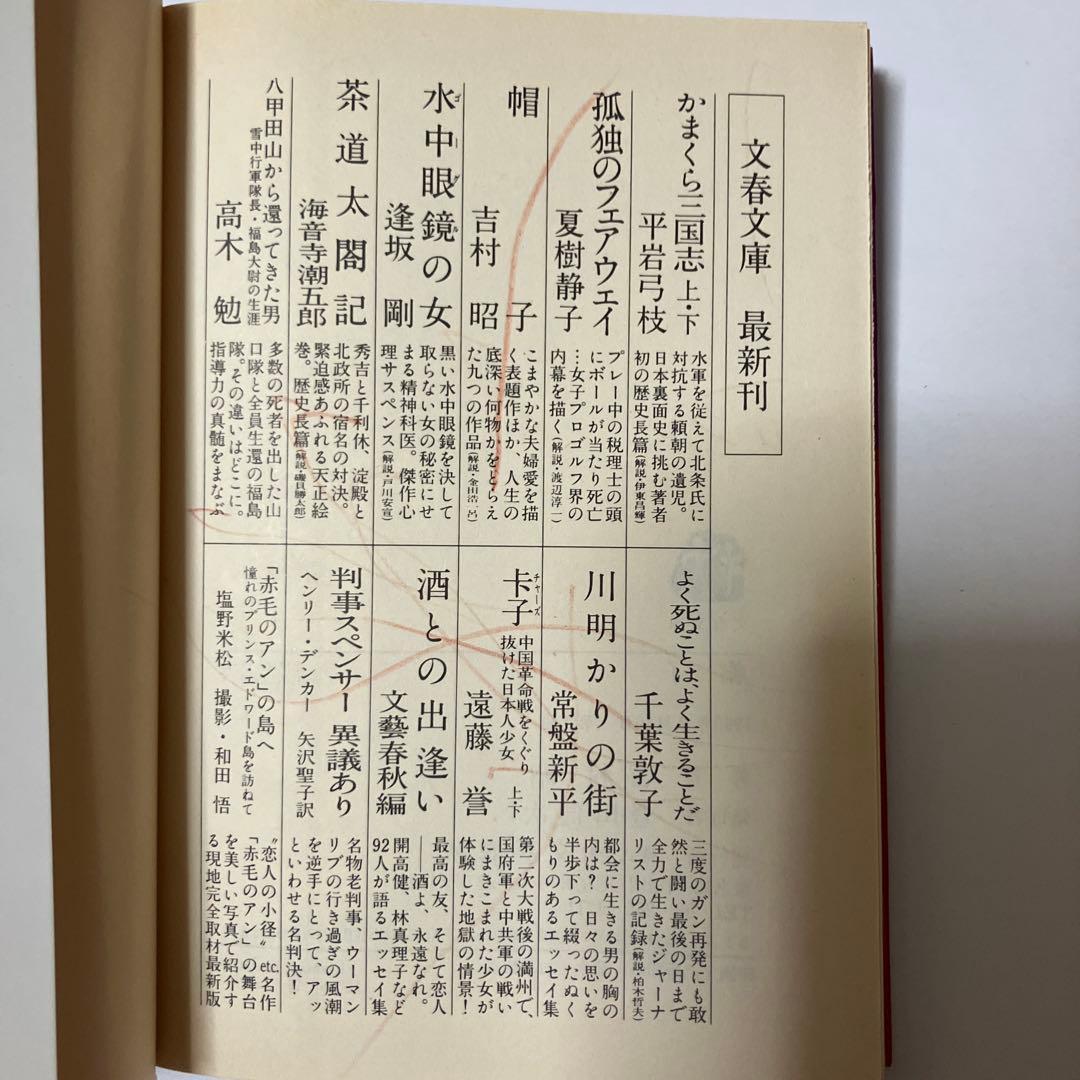 文春文庫 最新刊
かまくら三国志 上・下
平岩弓枝
水軍を従えて北条氏に
対抗する頼朝の遺児。
日本裏面史に挑む著者
初の歴史長篇(解説・伊東昌輝)
孤独のフェアウェイ
夏樹静子
プレー中の税理士の頭
にボールが当たり死亡
…女子プロゴルフ界の
内幕を描く(解説・渡辺淳一)
帽子
吉村昭
こまやかな夫婦愛を描
く表題作ほか、人生の
底深い何物かをとらえ
た九つの作品(解説・金田浩一呂)
水中眼鏡の女
ゴーグル
逢坂剛
黒い水中眼鏡を決して
取らない女の秘密にせ
まる精神科医。傑作心
理サスペンス(解説・戸川安宣)
茶道太閤記
海音寺潮五郎
秀吉と千利休、淀殿と
北政所の宿名の対決。
緊迫感あふれる天正絵
巻。歴史長篇(解説・磯貝勝太郎)
八甲田山から還ってきた男
雪中行軍隊長・福島大尉の生涯
高木勉
多数の死者を出した山
口隊と全員生還の福島
隊。その違いはどこに。
指導力の真髄をまなぶ
よく死ぬことは、よく生きることだ
千葉敦子
三度のガン再発にも敢
然と闘い最後の日まで
全力で生きたジャーナ
リストの記録(解説・柏木哲夫)
川明かりの街
常盤新平
都会に生きる男の胸の
内は? 日々の思いを
半歩下って綴ったぬく
もりのあるエッセイ集
卡子
チャーズ
中国革命戦をくぐり
抜けた日本人少女
上・下
遠藤誉
第二次大戦後の満州で、
国府軍と中共軍の戦い
にまきこまれた少女が
体験した地獄の情景!
酒との出逢い
文藝春秋編
最高の友、そして恋人
――酒よ、永遠なれ。
開高健、林真理子など
92人が語るエッセイ集
判事スペンサー 異議あり
ヘンリー・デンカー 矢沢聖子訳
名物老判事、ウーマン
リブの行き過ぎの風潮
を逆手にとって、アッ
といわせる名判決!
「赤毛のアン」の島へ
憧れのプリンス・エドワード島を訪ねて
塩野米松 撮影・和田悟
〝恋人の小径〟etc.名作
「赤毛のアン」の舞台
を美しい写真で紹介す
る現地完全取材最新版